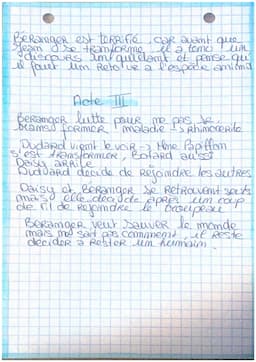 Béranger est torrifié, car avant que
Jean se transforme, il a tenu un
discours inquiétant et pense qu'
il faut un retour à l'espèce animal
Acte III
Béranger lutte pour ne pas se
transformer maladie → rhinocérite
Dudard vient le voir → Mme Papillon
s'est transformer, Botard aussi
Daisy arrive
Dudard décide de rejoindre les autres
Daisy et Béranger se retrouvent seuls
mais elle décide après un coup
de fil de rejoindre le troupeau
Béranger veut sauver le monde
mais ne sait pas comment, il reste
décider à rester un humain.